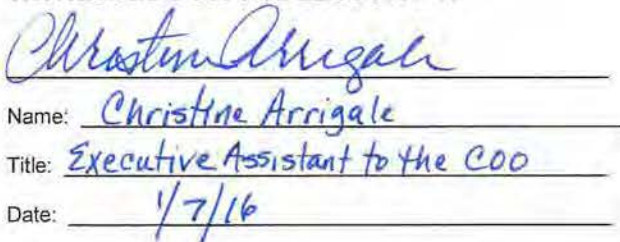 Christine Arrigale
Name: Christine Arrigale
Title: Executive Assistant to the COO
Date: 1/7/16